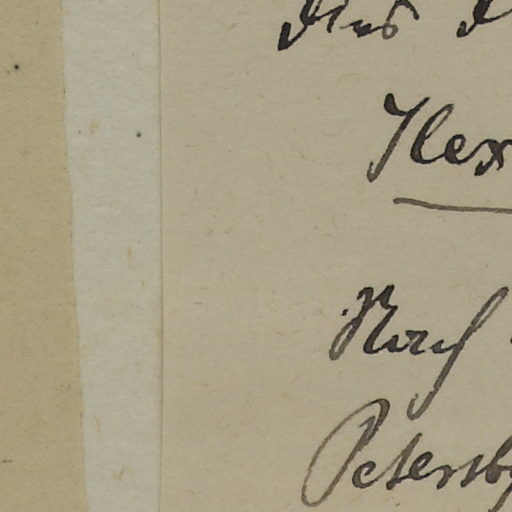 Ilex
Nach
Petersb